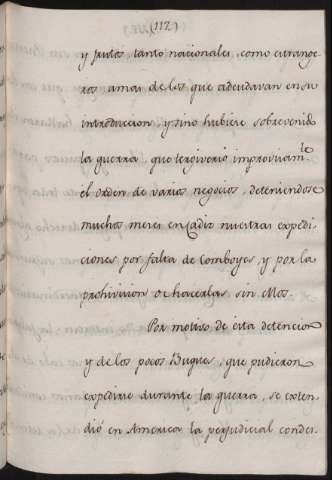 (112)
y frutos tanto nacionales, como estrange
ros amas de los que adeudavan en su
introduccion, y sino hubiere sobrevenido
la guerra, que tergiversó improvisam.te
el orden de varios negocios, deteniendose
muchos meses en Cadiz nuestras expedi
ciones por falta de Comboyes, y por la
prohivision de hacerlas sin ellos.
Por motivo de esta detencion
y de los pocos Buques, que pudieron
expedirse durante la guerra, se exten
dió en America la perjudicial condes